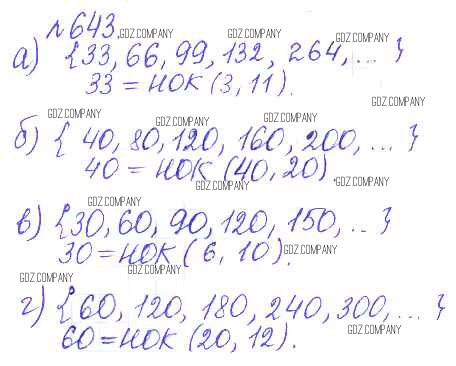 №643.
GDZ.COMPANY GDZ.COMPANY GDZ.COMPANY
а) {33, 66, 99, 132, 264, ... }
33 = НОК (3, 11).
GDZ.COMPANY
GDZ.COMPANY GDZ.COMPANY GDZ.COMPANY
б) { 40, 80, 120, 160, 200, ... }
40 = НОК (40, 20).
GDZ.COMPANY
GDZ.COMPANY
GDZ.COMPANY
в) {30, 60, 90, 120, 150, .. }
30 = НОК ( 6, 10).
GDZ.COMPANY
GDZ.COMPANY
GDZ.COMPANY
г) {60, 120, 180, 240, 300, ... }
60 = НОК (20, 12).
GDZ.COMPANY